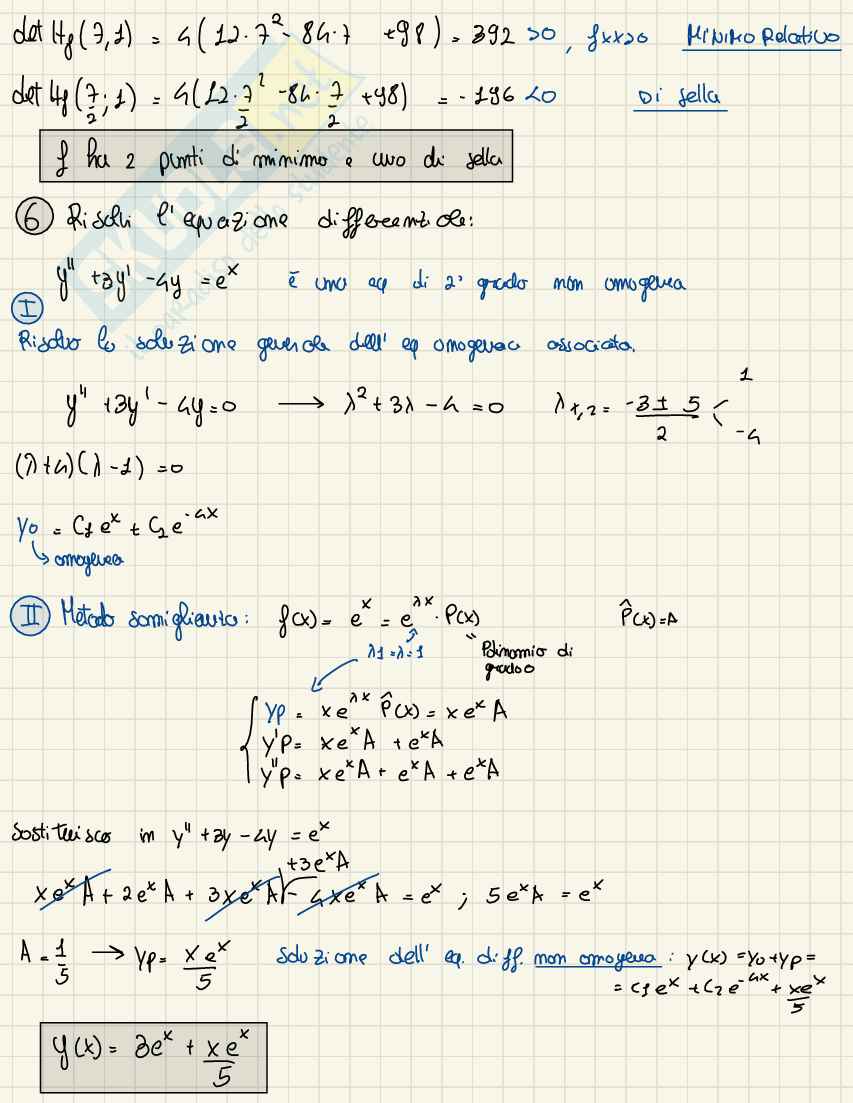 det Hf(7,1) = 4(12·7² - 84·7 +98) = 392 >0, fxx>0 MINIMO RELATIVO
det Hf(7/2;1) = 4(12·7/2² -84·7/2 +98) = -196 <0 Di sella
f ha 2 punti di minimo e uno di sella
6 Risolvi l'equazione differenziale:
y'' +3y' -4y = eˣ è una eq di 2° grado non omogenea
I
Risolvo la soluzione generale dell' eq omogenea associata.
y'' +3y' -4y=0 → λ² + 3λ -4 =0 λ1,2 = (-3 ± 5)/2 < 1 -4
(λ+4)(λ-1) =0
yo = C1 eˣ + C2 e^-4x
↳ omogenea
II Metodo somiglianza: f(x) = eˣ = e^λx · P(x) P̂(x)=A
λ1=λ=1 " Polinomio di
grado 0
yp = x e^λx P̂(x) = x eˣ A
y'p = xeˣA + eˣA
y''p = xeˣA + eˣA + eˣA
Sostituisco in y'' +3y -4y = eˣ
+3eˣA
xeˣA + 2eˣA + 3xeˣA - 4xeˣA = eˣ ; 5eˣA = eˣ
A = 1/5 → yp = xeˣ/5 Soluzione dell' eq. diff. non omogenea : y(x) = yo+yp =
= C1 eˣ + C2 e^-4x + xeˣ/5
y(x) = 3eˣ + xeˣ/5
SKUOLA.net
il paradiso dello studente